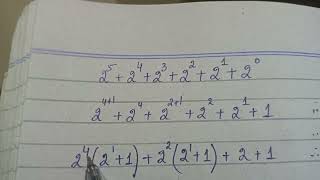 2⁵ + 2⁴ + 2³ + 2² + 2¹ + 2⁰
2⁴⁺¹ + 2⁴ + 2²⁺¹ + 2² + 2¹ + 1
2⁴(2¹+1) + 2²(2¹+1) + 2 + 1